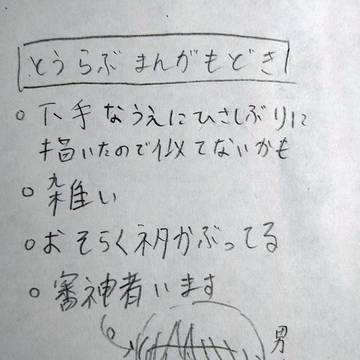 とうらぶまんがもどき
○下手なうえにひさしぶりに
描いたので似てないかも
○雑い
○おそらくネタかぶってる
○審神者います
男